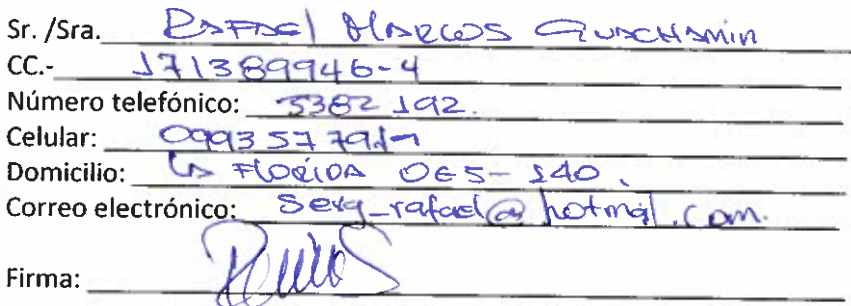 Sr. /Sra. RAFAEl MARCOS GUACHAMIN
CC.- 171389946-4
Número telefónico: 3382 192.
Celular: 0993 57 79
Domicilio: LA FLORIDA OE5- 140.
Correo electrónico: Serg_rafael@hotmail.com.
Firma: